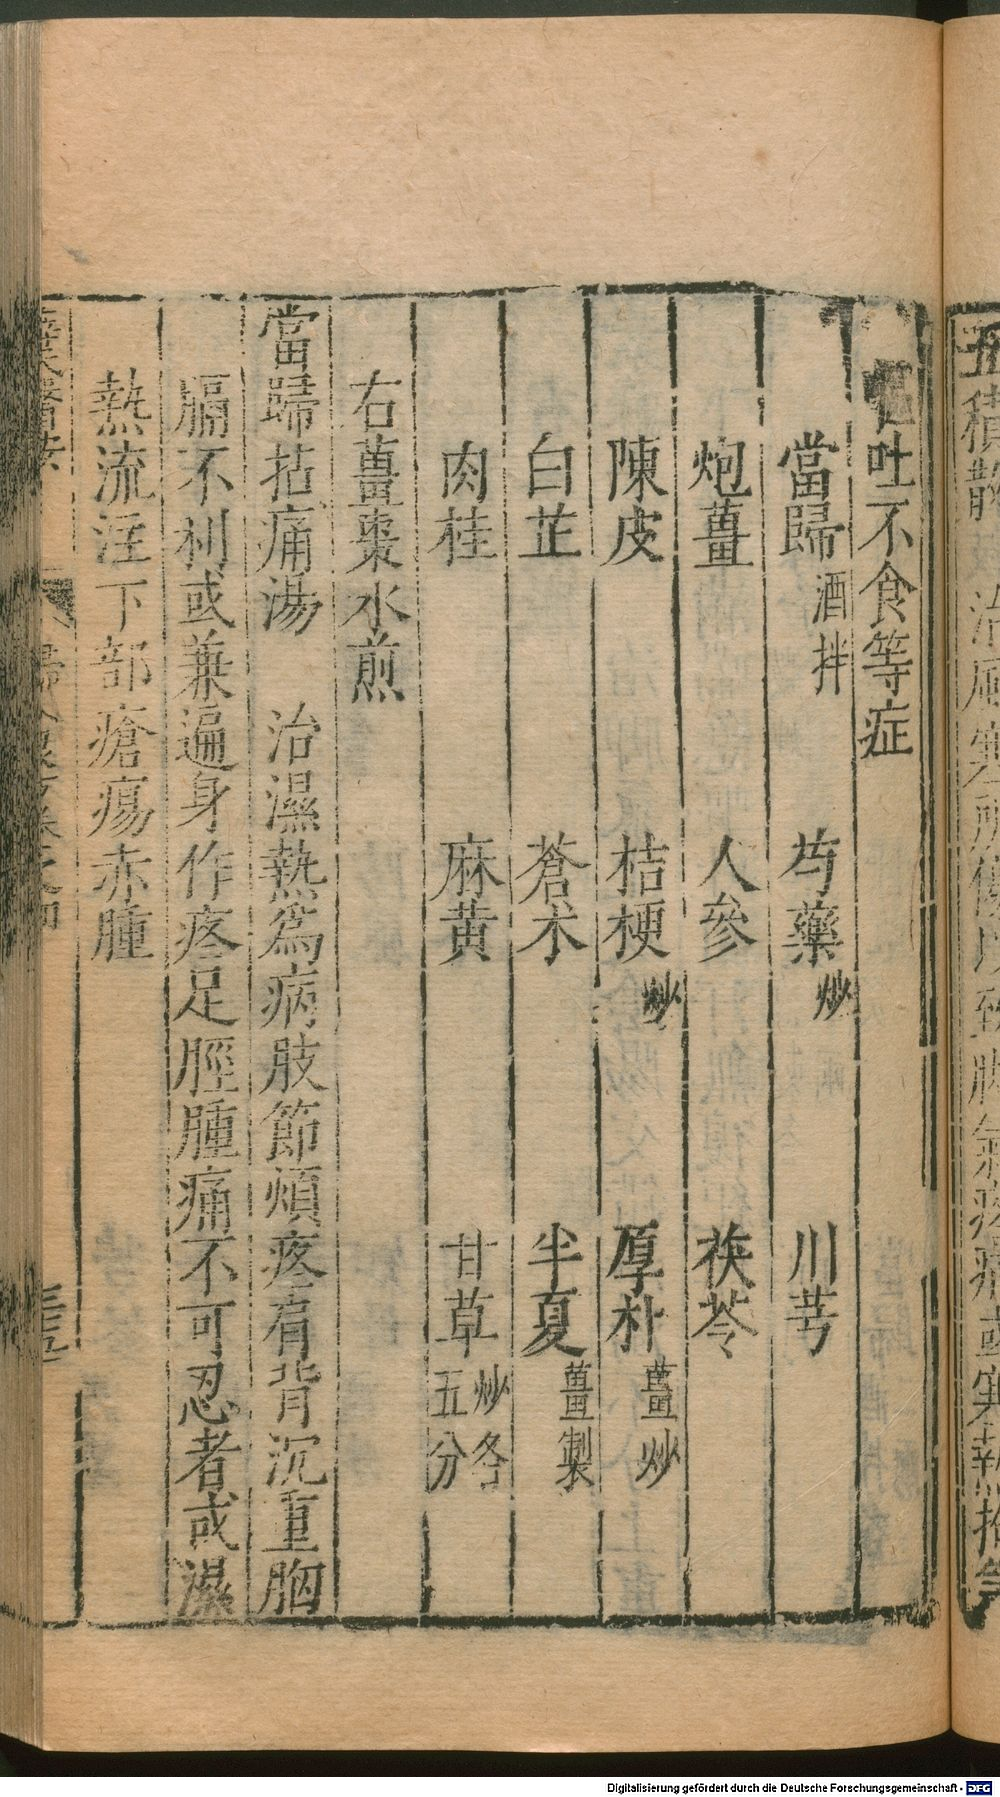 吐不食等症
當歸酒拌 芍藥炒 川芎
炮薑 人參 茯苓
陳皮 桔梗炒 厚朴薑炒
白芷 蒼朮 半夏薑製
肉桂 麻黄 甘草炒各五分
右薑棗水煎
當歸拈痛湯 治濕熱爲病肢節煩疼肩背沉重胸
膈不利或兼遍身作疼足脛腫痛不可忍者或濕
熱流注下部瘡瘍赤腫
Digitalisierung gefördert durch die Deutsche Forschungsgemeinschaft - DFG